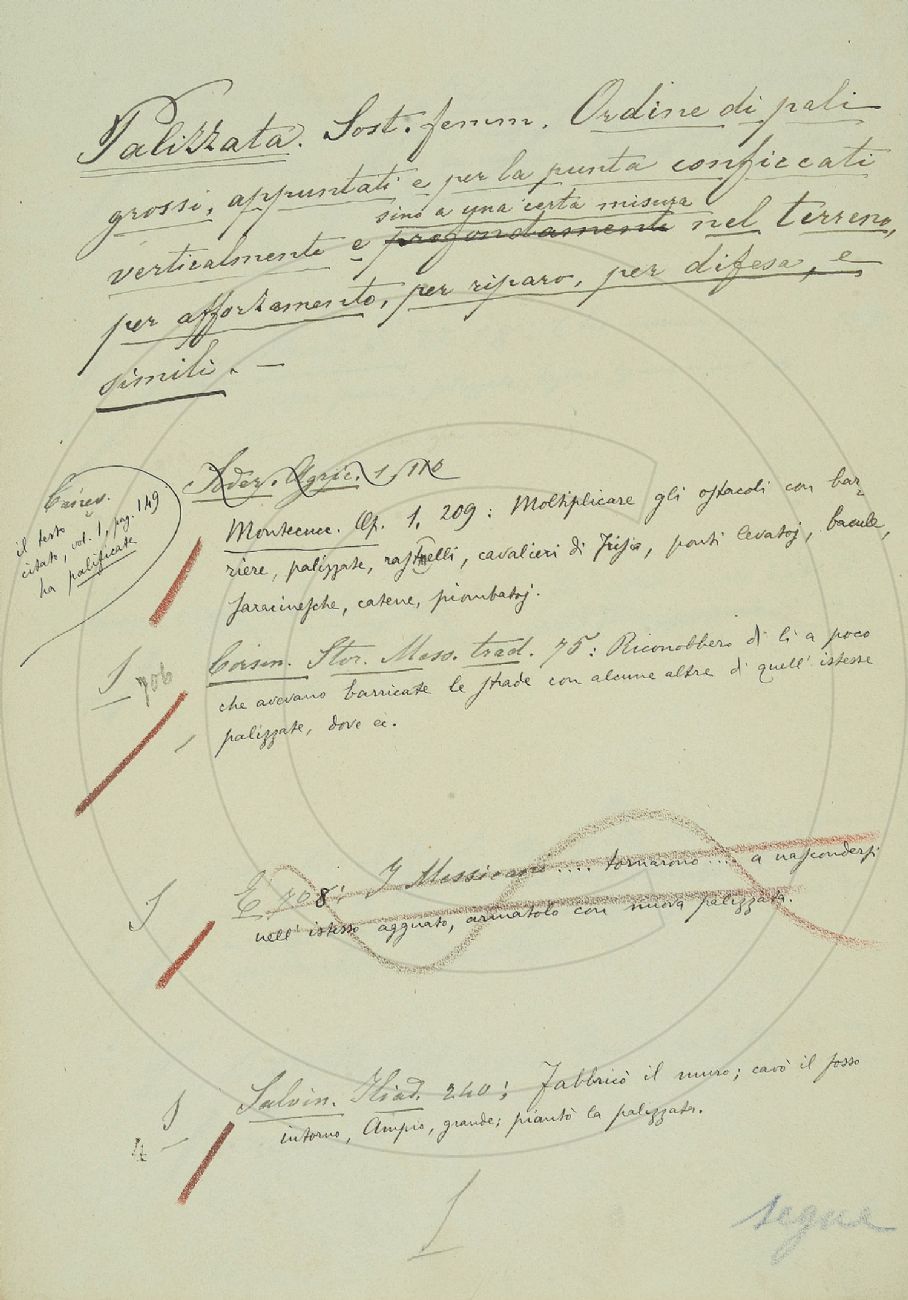 Palizzata. Sost. femm. Ordine di pali
grossi, appuntati e per la punta conficcati
sino a una certa misura
verticalmente e profondamente nel terreno,
per afforzamento, per riparo, per difesa, e
simili. –
Soder. Agric. 1, 116
Montecucc. Op. 1, 209: Moltiplicare gli ostacoli con bar-
riere, palizzate, rastelli, cavalieri di Frisa, ponti levatoj, bacule,
saracinesche, catene, piombatoj.
il testo
citato, vol. 1, pag. 149
ha palificate
S 706
Corsin. Stor. Mess. trad. 75: Riconobbero di lì a poco
che avevano barricate le strade con alcune altre di quell'istesse
palizzate, dove ec.
S
E 708: I Messicani .... tornarono ... a nascondersi
nell'istesso agguato, armatolo con nuova palizzata.
S
4
Salvin. Iliad. 240: Fabbricò il muro; cavò il fosso
intorno, Ampio, grande; piantò la palizzata.
segue